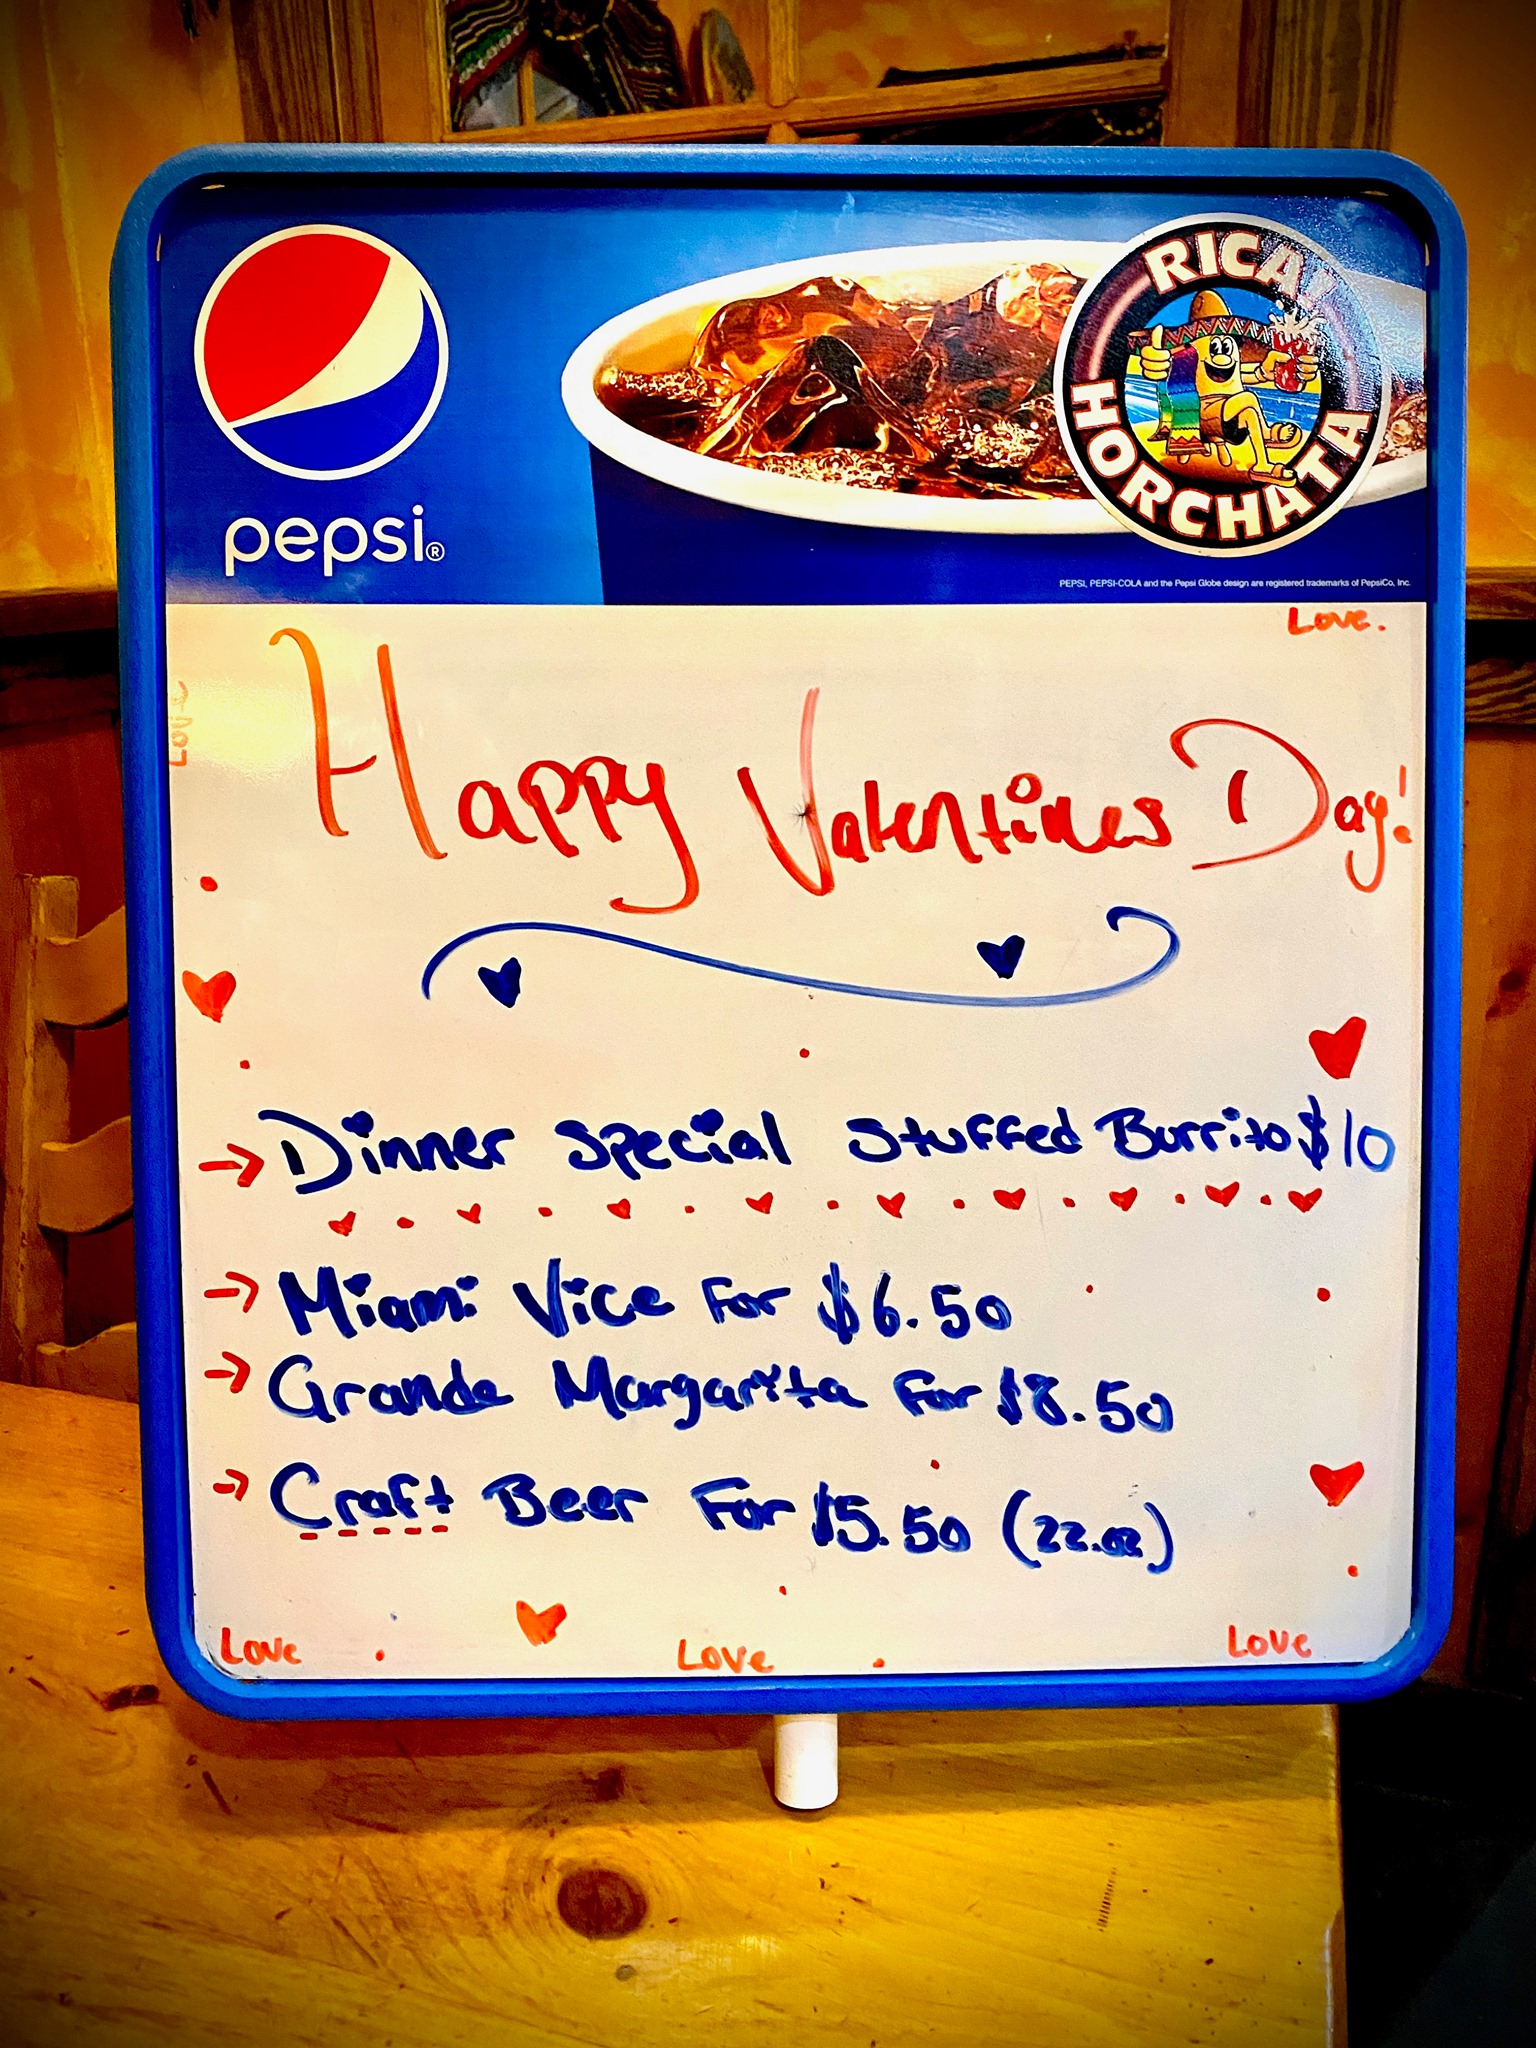 pepsi®
RICA!
HORCHATA
PEPSI, PEPSI-COLA and the Pepsi Globe design are registered trademarks of PepsiCo, Inc.
Love.
Love
Happy Valentines Day!
Dinner Special Stuffed Burrito $10
Miami Vice For $6.50
Grande Margarita For $8.50
Craft Beer For $5.50 (22.oz)
Love
Love
Love